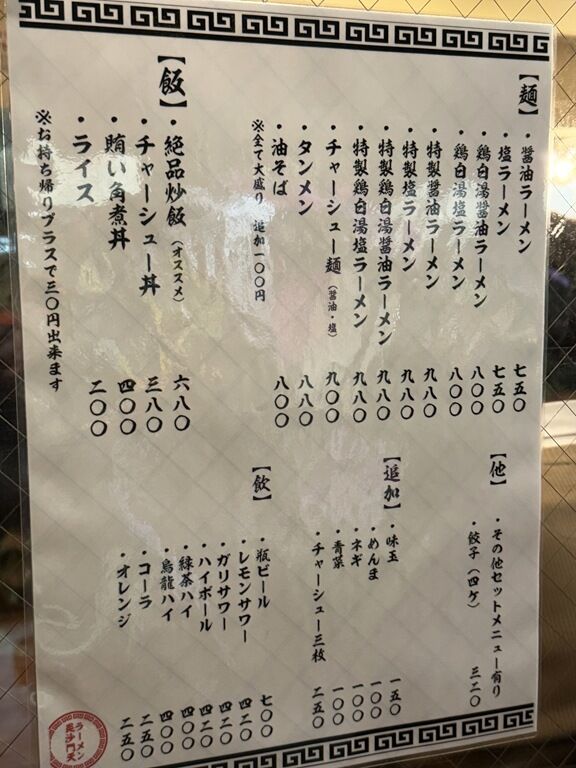 【麺】
・醤油ラーメン 七五〇
・塩ラーメン 七五〇
・鶏白湯醤油ラーメン 八〇〇
・鶏白湯塩ラーメン 八〇〇
・特製醤油ラーメン 九八〇
・特製塩ラーメン 九八〇
・特製鶏白湯醤油ラーメン 九八〇
・特製鶏白湯塩ラーメン 九八〇
・チャーシュー麺（醤油・塩） 九〇〇
・タンメン 八八〇
・油そば 八〇〇
※全て大盛り 追加一〇〇円
【飯】
・絶品炒飯（オススメ） 六八〇
・チャーシュー丼 三八〇
・賄い角煮丼 四〇〇
・ライス 二〇〇
※お持ち帰りプラスで三〇円出来ます
【他】
・その他セットメニュー有り
・餃子（四ケ） 三二〇
【追加】
・味玉 一五〇
・めんま 一〇〇
・ネギ 一〇〇
・青菜 一〇〇
・チャーシュー三枚 二五〇
【飲】
・瓶ビール 七〇〇
・レモンサワー 四二〇
・ガリサワー 四二〇
・ハイボール 四二〇
・緑茶ハイ 四〇〇
・烏龍ハイ 四〇〇
・コーラ 二五〇
・オレンジ 二五〇
ラーメン
毘沙門天